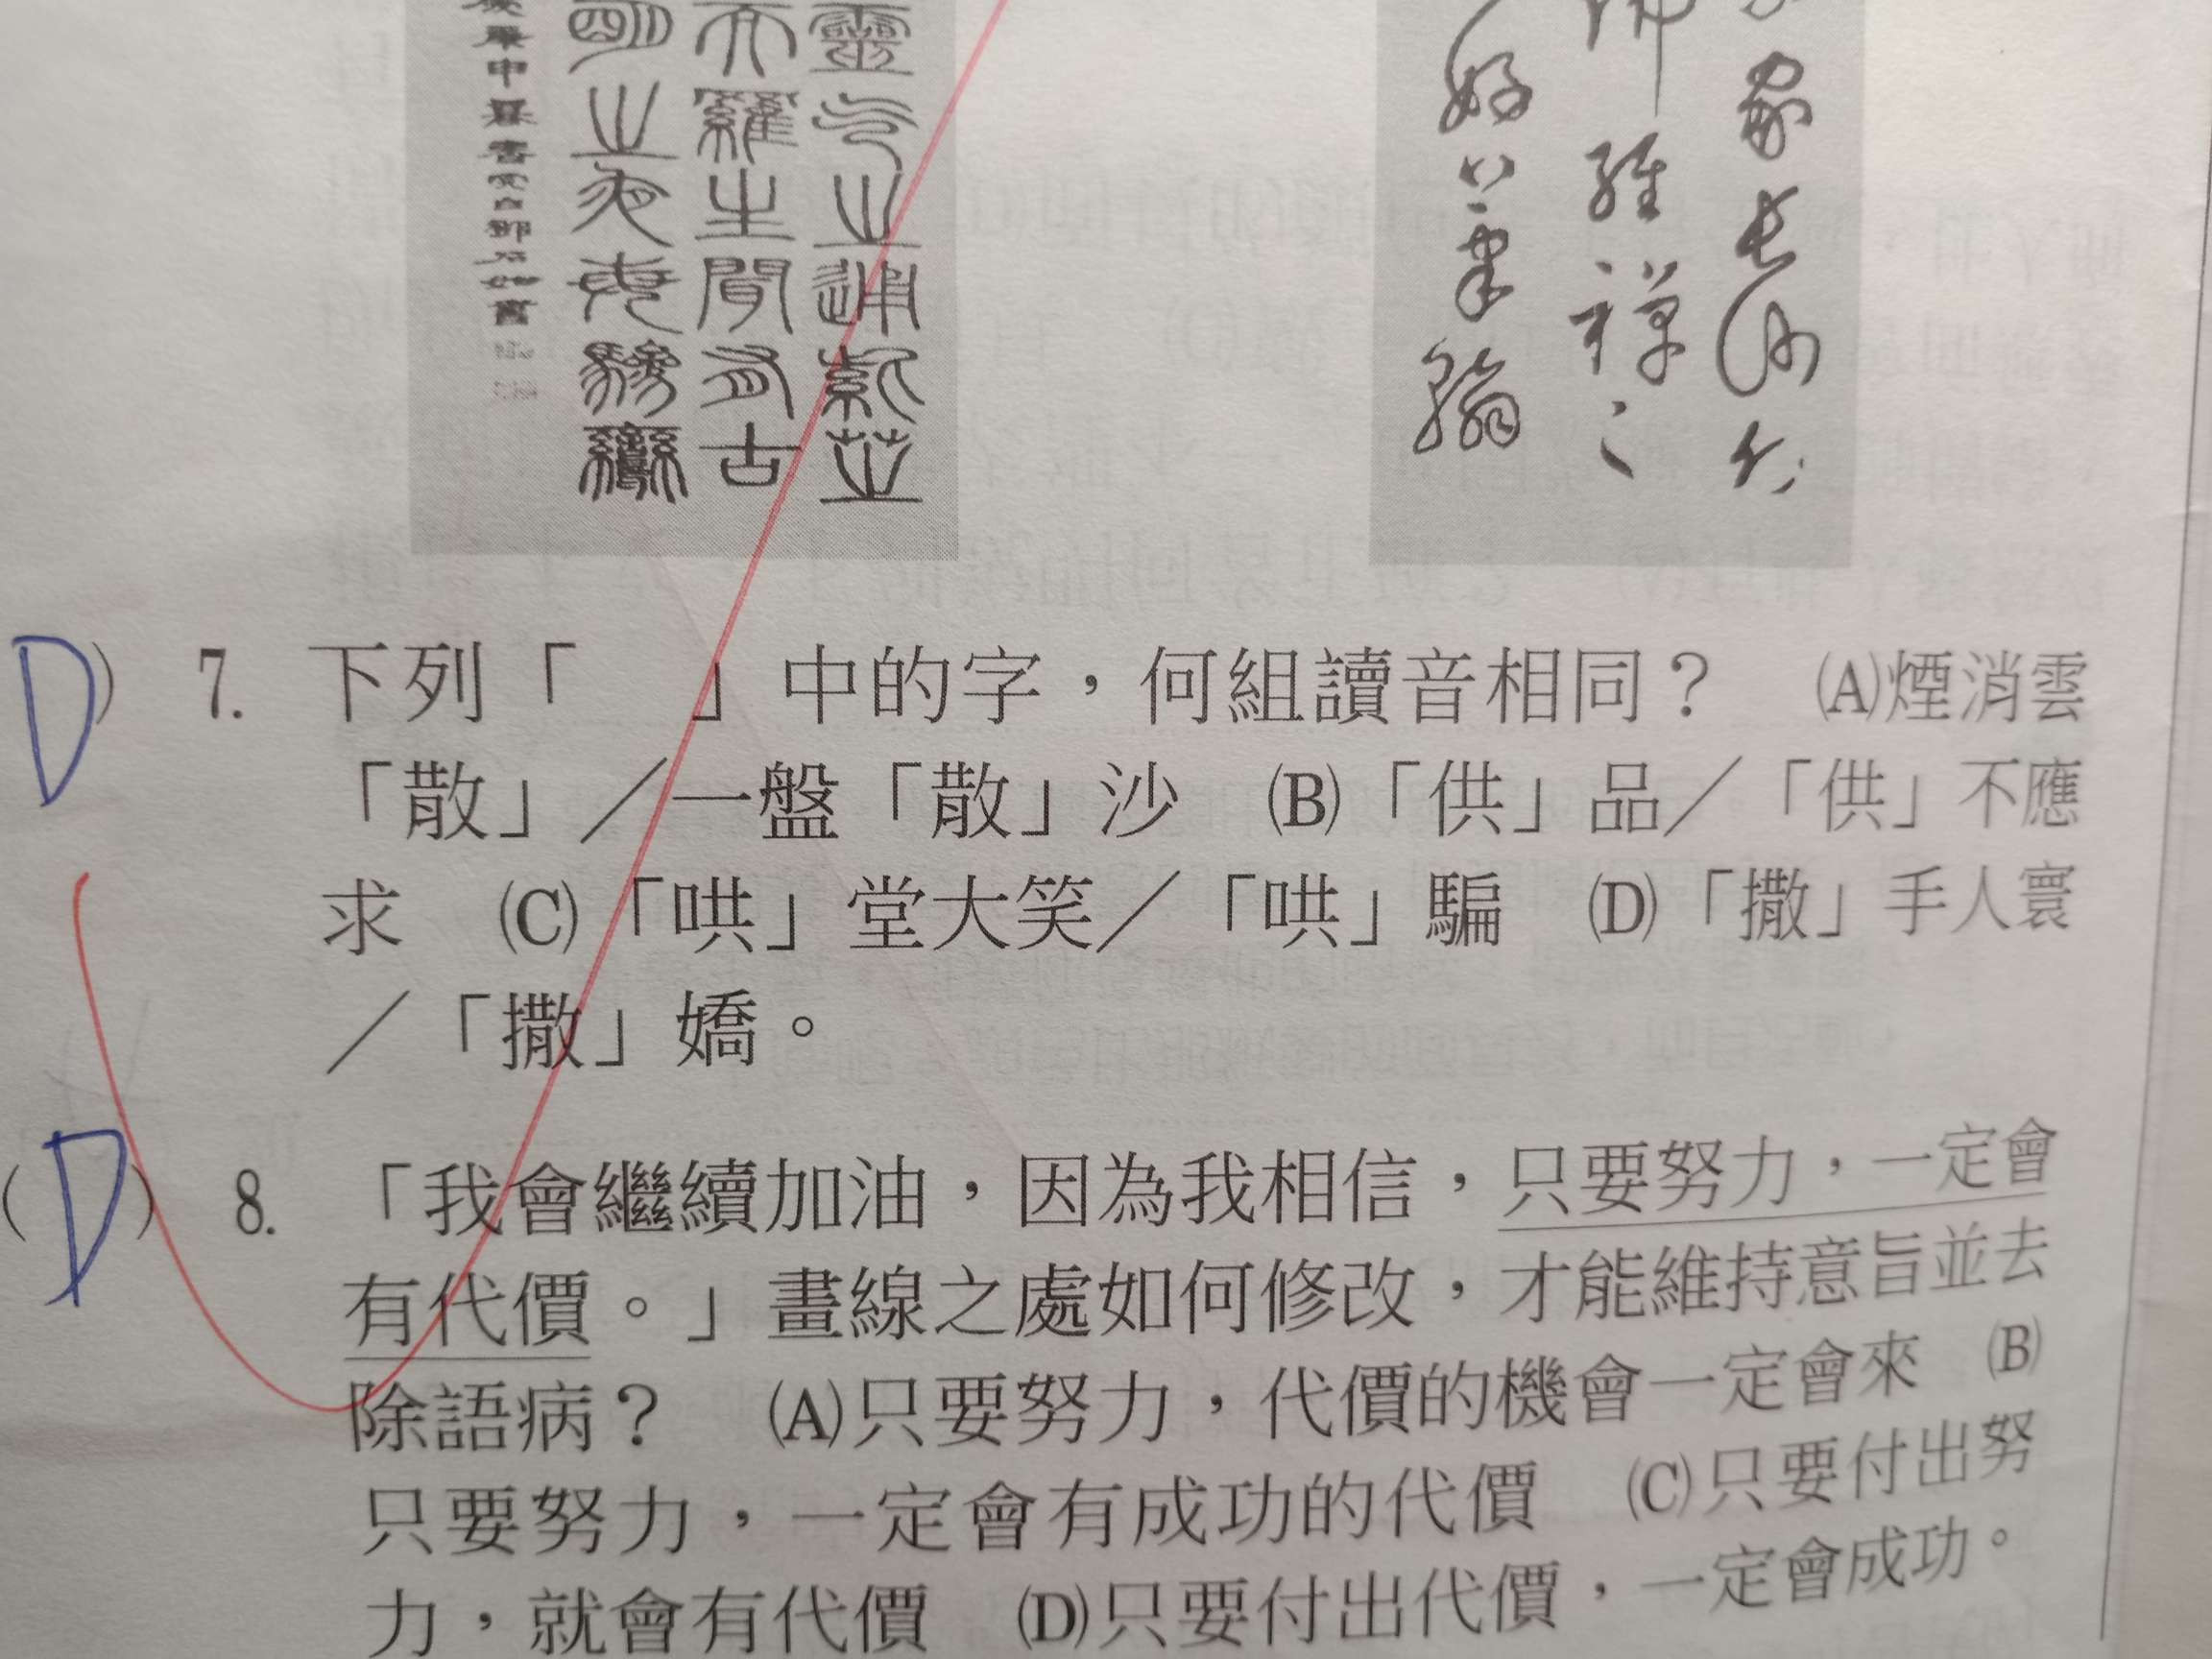 靈
之通
天羅生
開
古
明之夜
中
書
好
筆
翰
維禪
家長
D) 7. 下列「　」中的字，何組讀音相同？　(A)煙消雲
「散」／一盤「散」沙　(B)「供」品／「供」不應
求　(C)「哄」堂大笑／「哄」騙　(D)「撒」手人寰
／「撒」嬌。
(D) 8. 「我會繼續加油，因為我相信，只要努力，一定會
有代價。」畫線之處如何修改，才能維持意旨並去
除語病？　(A)只要努力，代價的機會一定會來　(B)
只要努力，一定會有成功的代價　(C)只要付出努
力，就會有代價　(D)只要付出代價，一定會成功。